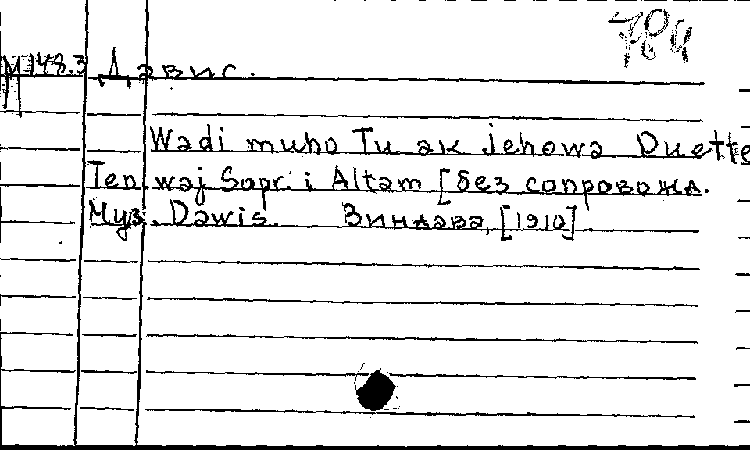 784
М148.3 Дэвис.
Wadi muho Tu ak jehowa Duette
Ten. waj Sopr. i Altam [без сопровожд.
Муз. Dawis. Виндава, [1910].